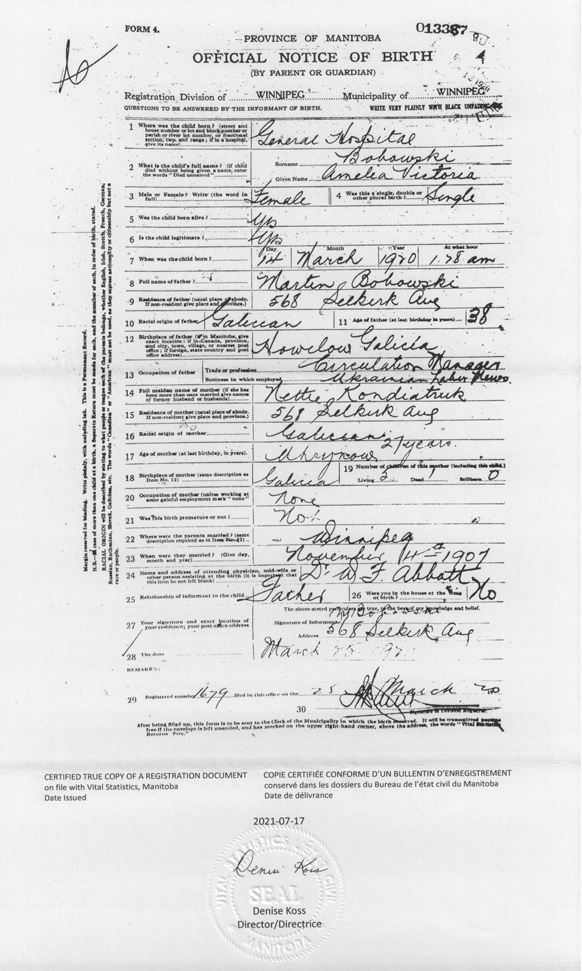 FORM 4.
013387
PROVINCE OF MANITOBA
OFFICIAL NOTICE OF BIRTH
(BY PARENT OR GUARDIAN)
Registration Division of WINNIPEG Municipality of WINNIPEG
QUESTIONS TO BE ANSWERED BY THE INFORMANT OF BIRTH. WRITE VERY PLAINLY WITH BLACK UNFADING
1 Where was the child born? (street and house number or lot and block number or parish or river lot number, or fractional section, twp. and range; if in a hospital, give its name) General Hospital
2 What is the child's full name? (if child died without being given a name, enter the words "Died unnamed" Surname Bobowski
Given Name Amelia Victoria
3 Male or Female? Write (the word in full) Female 4 Was this a single, double or other plural birth? Single
5 Was the child born alive? Yes
6 Is the child legitimate? Yes
7 When was the child born? Day 14 Month March Year 1920 At what hour 1.28 am
8 Full name of father? Martin Bobowski
9 Residence of father (usual place of abode. If non-resident give place and province.) 568 Selkirk Aug
10 Racial origin of father Galician 11 Age of father (at last birthday in years) 38
12 Birthplace of father (if in Manitoba, give exact location: if in Canada, province, and city, town, village, or nearest post office; if foreign, state country and post office address) Galicia
13 Occupation of father Trade or profession Circulation Manager
Business in which employed Ukranian Labor News
14 Full maiden name of mother (if she has been more than once married give names of former husband or husbands) Nettie Kondiatruk
15 Residence of mother (usual place of abode. If non-resident give place and province.) 568 Selkirk Aug
16 Racial origin of mother Galician
17 Age of mother (at last birthday, in years). 27 years.
18 Birthplace of mother (same description as Item No. 12) Galicia 19 Number of children of this mother (including this child) Living 3 Dead 1 Stillborn 0
20 Occupation of mother (unless working at some gainful employment mark "none") None
21 Was this birth premature or not? No.
22 Where were the parents married? (same description required as in Item No. 12) Winnipeg
23 When were they married? (Give day, month and year) November 14th 1907
24 Name and address of attending physician, mid-wife or other person assisting at the birth (it is important that this item be not left blank) Dr. A. F. Abbott
25 Relationship of informant to the child Father 26 Were you in the house at the time of birth? No
The above stated particulars are true, to the best of my knowledge and belief.
27 Your signature and exact location of your residence; your post office address Signature of Informant
Address 568 Selkirk Aug
28 The date March 25
REMARKS:
29 Registered number 1679 filed in this office on the 25 March 20
30
Signature of Division Registrar.
After being filled up, this form is to be sent to the Clerk of the Municipality in which the birth occurred. It will be transmitted postage free if the envelope is left unsealed, and has marked on the upper right-hand corner, above the address, the words "Vital Statistics Returns Free."
Margin reserved for binding. Write plainly, with unfading ink. This is a Permanent Record.
N.B.—In case of more than one child at a birth, a Separate Return must be made for each, and the number of each, in order of birth, stated.
CERTIFIED TRUE COPY OF A REGISTRATION DOCUMENT
on file with Vital Statistics, Manitoba
Date Issued
COPIE CERTIFIÉE CONFORME D'UN BULLENTIN D'ENREGISTREMENT
conservé dans les dossiers du Bureau de l'état civil du Manitoba
Date de délivrance
2021-07-17
Denise Koss
SEAL
MANITOBA
Denise Koss
Director/Directrice